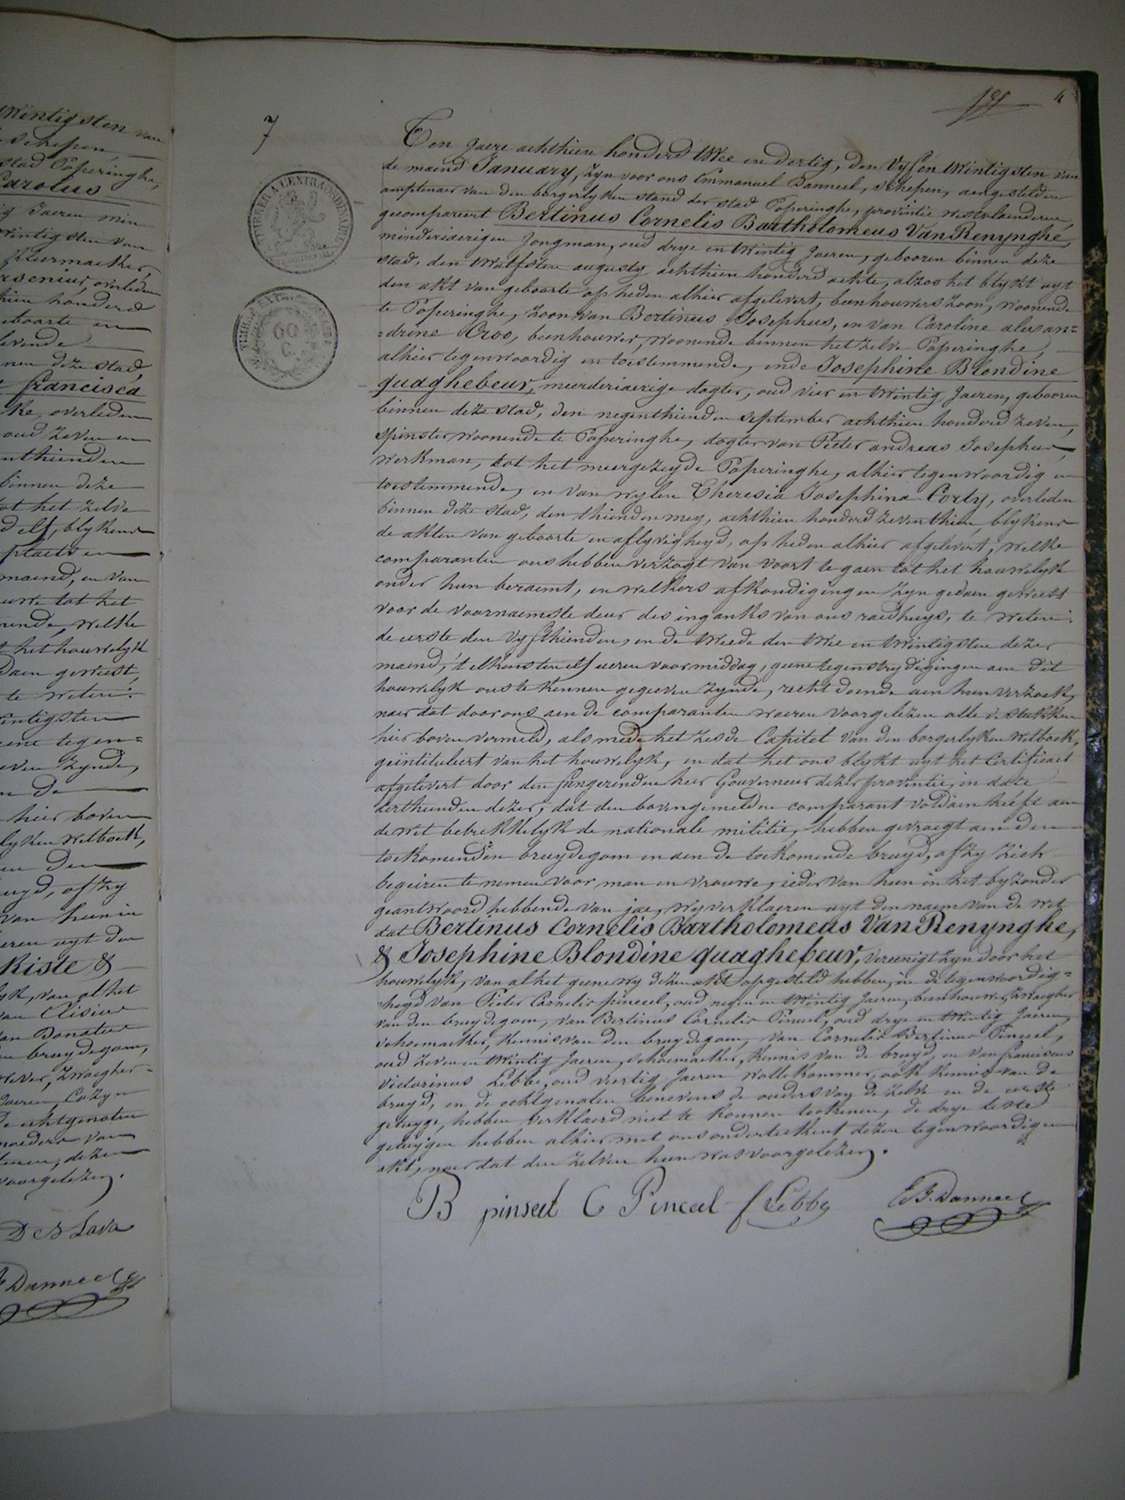 7
4
Ten jaere achthien honderd twee en dertig, den vyf en twintigsten van
de maend January, zyn voor ons Emmanuel Danneel, schepen, aengestelden
amptenaer van den borgerlyken stand der stad Poperinghe, provintie westvlaenderen,
gecompareert Bertinus Cornelis Bartholomeus Van Renynghe,
minderjaerigen jongman, oud drye en twintig Jaeren, gebooren binnen deze
stad, den twalfsten augusty achthien honderd achte, alzoo het blykt uyt
den akt van geboorte op heden alhier afgelevert, beenhouwers zoon, woonende
te Poperinghe, zoon van Bertinus Josephus, en van Caroline alexan=
=drine Croo, beenhouwer, woonende binnen het zelve Poperinghe,
alhier tegenwoordig en toestemmende, ende Josephine Blondine
quaghebeur, meerderjaerige dogter, oud vier en twintig Jaeren, gebooren
binnen deze stad, den negenthienden september achthien honderd zeven,
spinster woonende te Poperinghe, dogter van Pieter andreas Josephus
werkman, tot het meergezeyde Poperinghe, alhier tegenwoordig en
toestemmende, en van wylen Theresia Josephina Corty, overleden
binnen deze stad, den thienden mey, achthien honderd zeventhien, blykens
de akten van geboorte en aflyvigheyd, op heden alhier afgelevert, welke
comparanten ons hebben verzogt van voort te gaen tot het houwelyk
onder hun beraemt, en welkers afkondigingen zyn gedaen geweest
voor de voornaemste deur des inganks van ons raedhuys, te weten:
de eerste den vyfthienden, en de tweede den twee en twintigsten dezer
maend, t'elkens ten elf ueren voormiddag, geene tegenstrydigingen aen dit
houwelyk ons te kennen gegeeven zynde, recht doende aen hun verzoek,
naer dat door ons aen de comparanten waeren voorgelezen alle de stukken
hier boven vermeld, als mede het zesde Capitel van den borgerlyken wetboek,
geintituleert van het houwelyk, en dat het ons blykt uyt het Certificaet
afgelevert door den fungerenden heer Gouverneur dezer provintie, in date
derthienden dezer, dat den bovengemelden comparant voldaen heeft aen
de wet betrekkelyk de nationale militie, hebben gevraegt aen den
toekomenden bruydegom en aen de toekomende bruyd, of zy zich
begeiren te nemen voor man en vrouwe, ieder van hun in het byzonder
geantwoord hebbende van jae, wy verklaeren uyt den naem van de wet
dat Bertinus Cornelis Bartholomeus Van Renynghe,
& Josephine Blondine quaghebeur, vereenigt zyn door het
houwelyk, van al het geene wy dezen akt opgesteld hebben, in de tegenwoordig=
=heyd van Pieter Cornelis pinceel, oud negen en twintig Jaeren, beenhouwer, zwaegher
van den bruydegom, van Bertinus Cornelis Pinceel, oud drye en twintig Jaeren,
schoemaeker, kennis van den bruydegom, van Cornelis Bertinus Pinceel,
oud zeven en twintig Jaeren, schoemaeker, kennis van de bruyd, en van franciscus
victorinus Lebbe, oud veertig Jaeren wollekammer, ook kennis van de
bruyd, en de echtgenoten benevens de ouders van de zelve en de eerste
getuyge, hebben verklaerd niet te konnen teekenen, de drye leste
getuygen hebben alhier met ons onderteekent dezen tegenwoordigen
akt, naer dat den zelven hun was voorgelezen.
B pinseel C Pinceel f Lebbe E F. Danneel